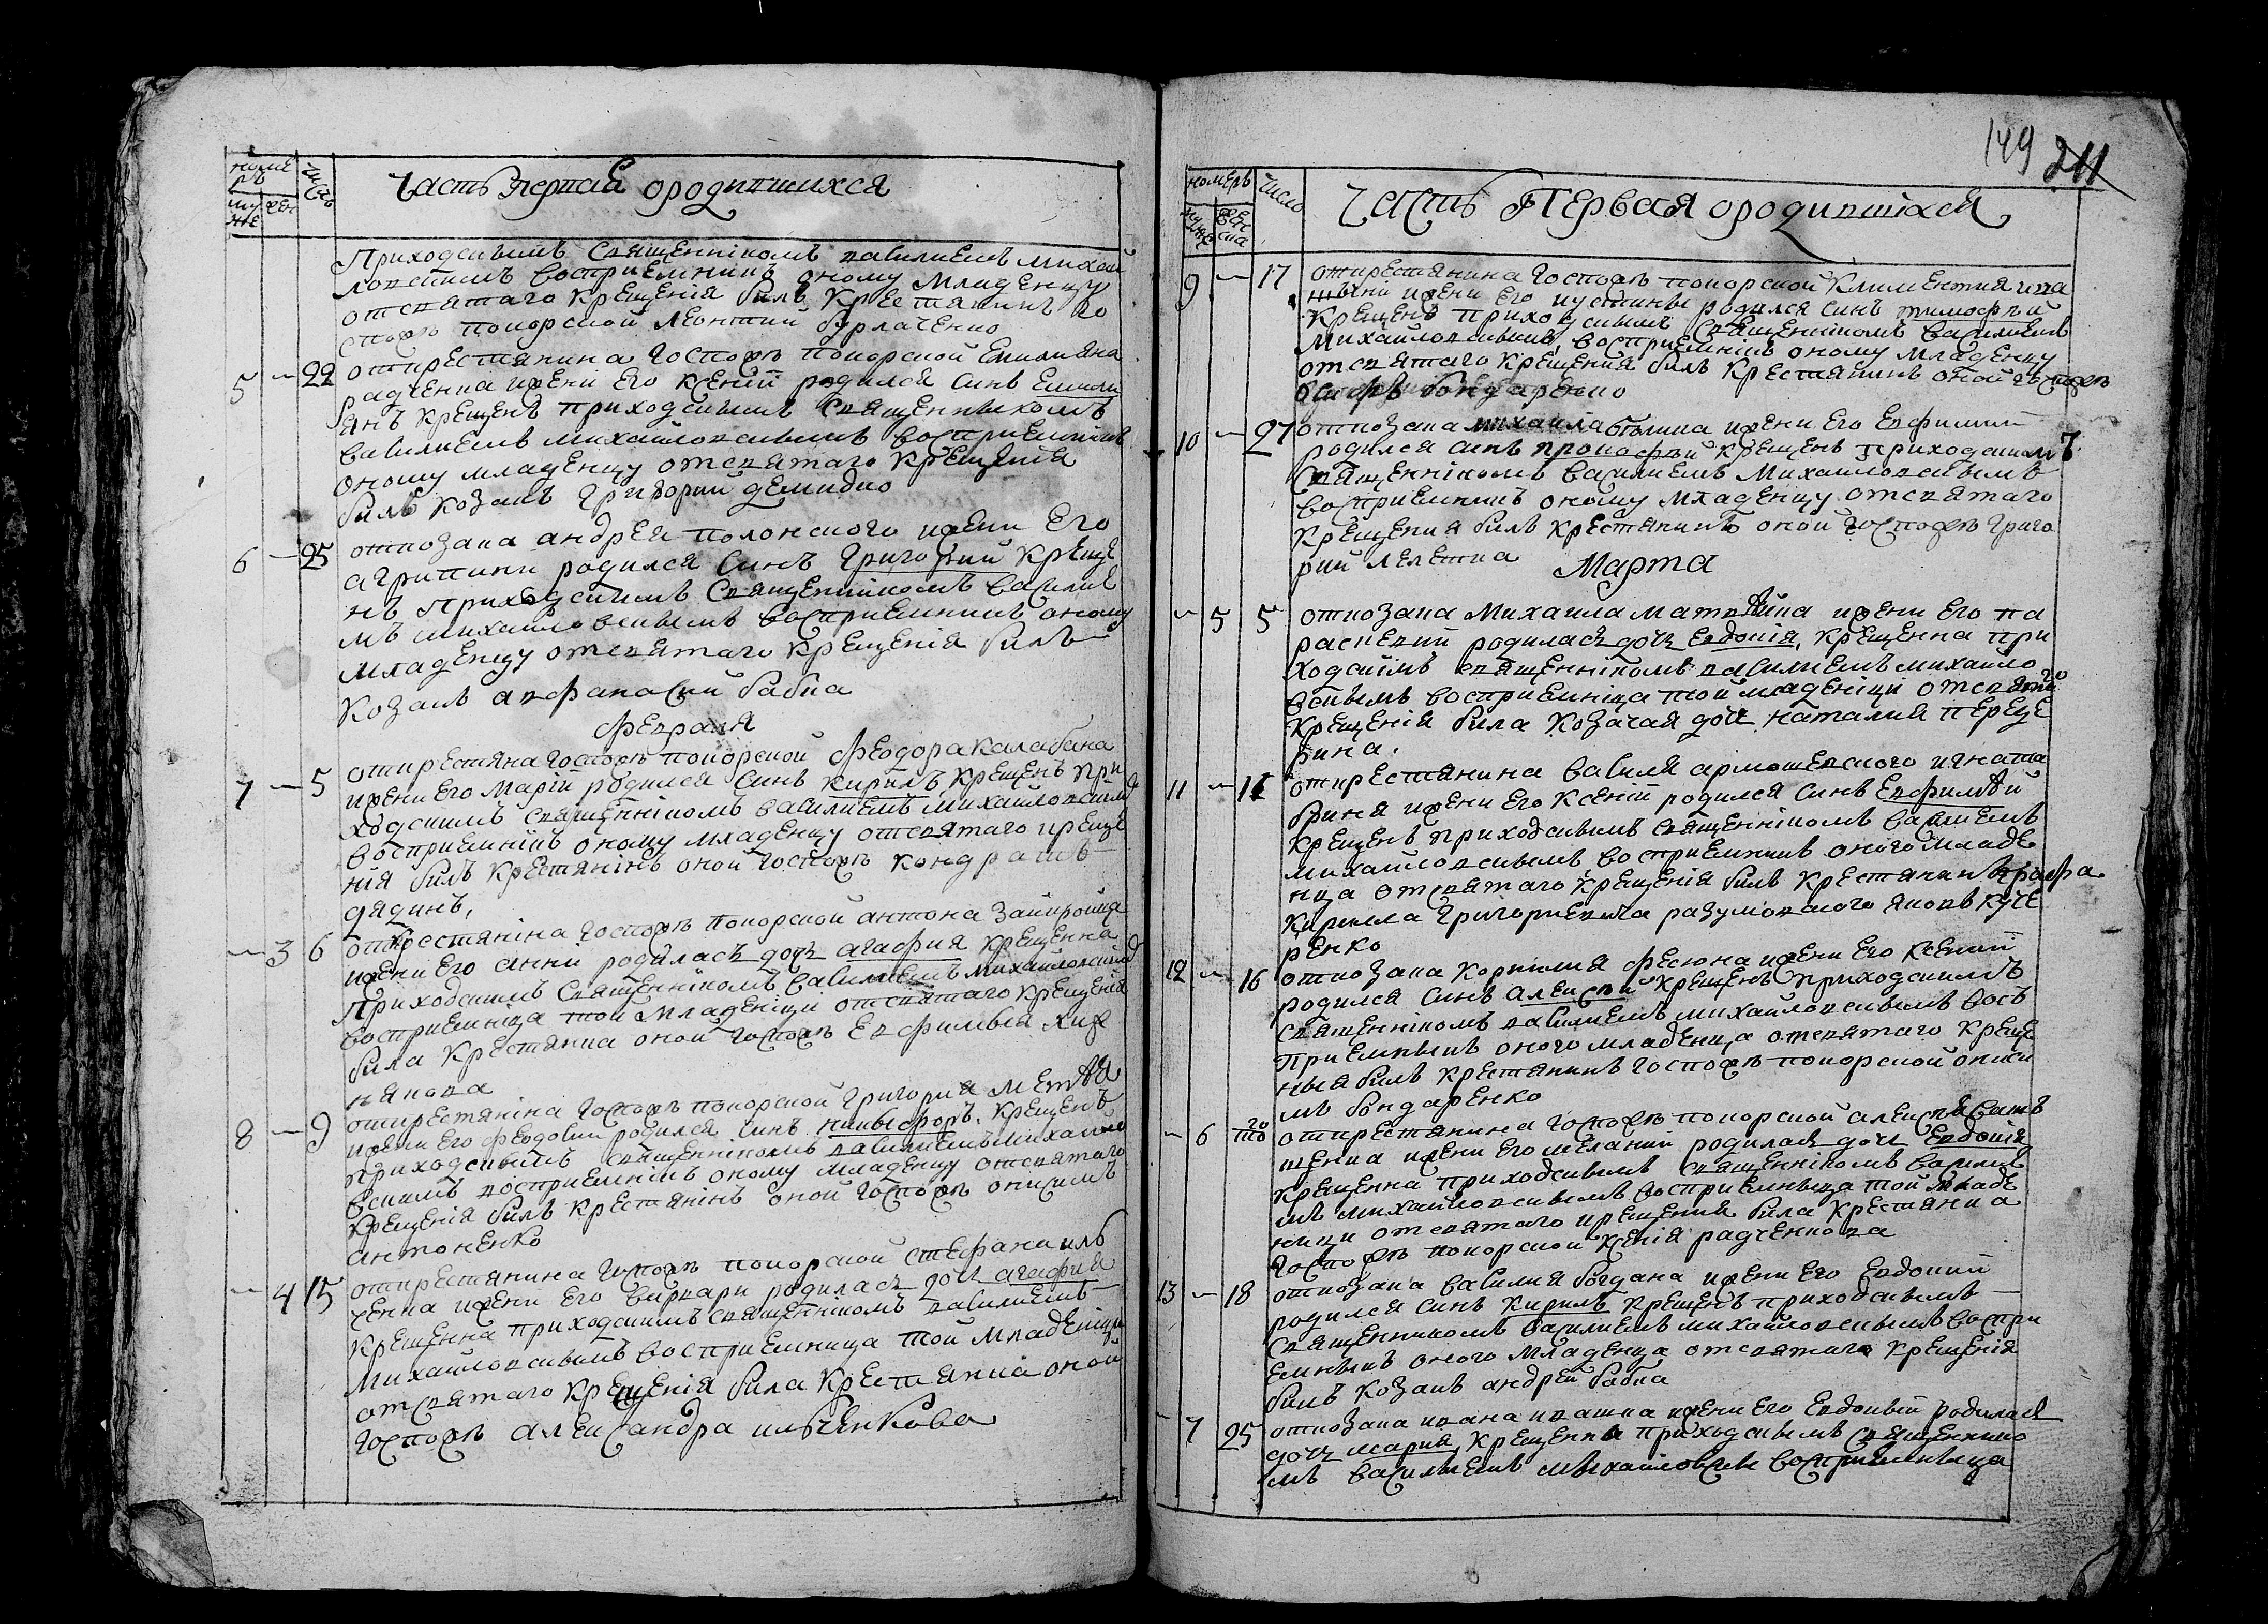 номе
ръ
му
же
жен
число
Часть Первая ородившихся
Приходскимъ Священнікомъ василиемъ михай
ловскимъ восприемникъ оному младенцу
отсвятаго крещенія билъ крестянинъ го
спожѣ покорской леонтий бурлаченко
5 22 открестянина госпожѣ покорской Емилияна
радченка ижени его ксенїй родился синъ Емили
янъ крещенъ приходскимъ священникомъ
василиемъ михайловскимъ восприемникъ
оному младенцу отсвятаго крещенія
билъ козакъ григорий демидко
6 25 откозака андрея полонского ижени его
агрипини родился синъ григорий креще
нъ приходскимъ священнікомъ василие
мъ михайловскимъ восприемникъ оному
младенцу отсвятаго крещенія билъ
козакъ авфанасий бабка
февраля
7 5 открестяна госпожѣ покорской феодора калабана
ижени его марїй родился синъ кирилъ крещенъ при
ходскимъ священнікомъ василиемъ михайловским
восприемнікъ оному младенцу отсвятаго креще
нія билъ крестянінъ оной госпожѣ кондратъ
дядинъ,
3 6 открестяніна госпожѣ покорской антона
ижени его анни родиласъ дочъ агафия крещенна
приходскимъ священнікомъ василиемъ михайловским
восприемніца той младеніци отсвятаго крещенія
била крестянка оной госпожѣ Евфимья хиж
някова
8 9 открестяніна госпожѣ покорской григория
ижени его феодосии родился синъ никыфоръ. крещенъ
приходскимъ священнікомъ василиемъ михайло
вскимъ восприемнікъ оному младенцу отсвятаго
крещенія билъ крестянінъ оной госпожѣ онисимъ
антоненко
4 15 открестянина госпожѣ покорской стефана илѣ
ченка ижени его варвари родиласъ дочъ агафия
крещенна приходскимъ священнікомъ василиемъ
михайловскимъ восприемница той младеници
отсвятаго крещенія била крестянка оной
госпожѣ александра ильченкова
149 211
номеръ
муже
женска
число
Часть Первая ородившіхся
9 17 открестянина госпожѣ покорской климентия ива
ижени его иустины родился синъ тимофѣй
крещенъ приходскимъ священнікомъ василиемъ
михайловскимъ, восприемнікъ оному младенцу
отсвятаго крещения билъ крестянинъ оной госпожѣ
бондаренко
10 27 откозака михаила ижени его Евфимии
родился синъ прокофѣй крещенъ приходскимъ
священнікомъ василиемъ михайловскимъ
восприемникъ оному младенцу отсвятаго
крещения билъ крестянинъ оной госпожѣ григо
рий лелетка
Марта
5 5 откозака михаила матвѣйка ижени его па
раскевий родилася дочъ Евдокія, крещенна при
ходскімъ священнікомъ василиемъ михайло
вскимъ восприемніца той младеніци отсвятаго
крещенія била козачая дочъ наталия переце
пина.
11 11 открестянина василя армошевского игната
бриня ижени его ксенїй родился синъ Евфимѣй
крещенъ приходскимъ священнікомъ василиемъ
михайловскимъ восприемникъ оного младе
нца отсвятаго крещенія билъ крестянинъ графа
кирилла григориевича разумовского яковъ куче
ренко
12 16 откозака корнилия фесюна ижени его ксений
родился синъ алексѣй крещенъ приходскимъ
священнікомъ василиемъ михайловскимъ восъ
приемникъ оного младенца отсвятаго креще
ныя билъ крестянинъ госпожѣ покорской ониси
мъ бондаренко
6 го то открестянина госпожѣ покорской алексѣя
щенка ижени его меланий родилася дочъ Евдокія
крещенна приходскимъ священнікомъ василие
мъ михайловскимъ восприемныца той младе
ници отсвятаго крещения била крестянка
госпожѣ покорской ксенія радченкова
13 18 откозака василия богдана ижени его Евдокий
родился синъ кирилъ крещенъ приходскимъ
священникомъ василиемъ михайловскимъ воспри
емныкъ оного младенца отсвятаго крещенія
билъ козакъ андрей бабка
7 25 откозака ивана ивашка ижени его Евдокый родилася
дочъ мария, крещенна приходскимъ священнико
мъ василиемъ михайловским восприемныца